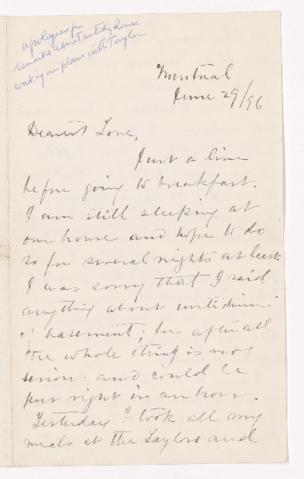 apologies for
remarks about untidy house
working on plans with Taylor
Montreal
June 29/96
Dearest Love,
Just a line
before going to breakfast.
I am still sleeping at
our house and hope to do
so for several nights at least
I was sorry that I said
anything about untidiness
basement; for after all
the whole thing is not
serious and could be
put right in an hour.
Yesterday I took all my
meals at the Taylors and